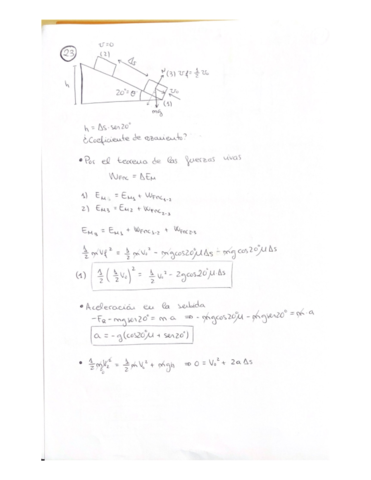 23
v=0
(2)
Δs
N
(3) vf = 1/2 v0
h
20°=θ
v0
(1)
mg
h = Δs·sen20°
¿Coeficiente de rozamiento?
• Por el teorema de las fuerzas vivas
W_FNC = ΔEm
1) Em2 = Em1 + W_FNC1-2
2) Em3 = Em2 + W_FNC2-3
Em3 = Em1 + W_FNC1-2 + W_FNC2-3
1/2 m vf² = 1/2 m v0² - mg cos20° μ Δs - mg cos20° μ Δs
(1) 1/2 (1/2 v0)² = 1/2 v0² - 2g cos20° μ Δs
• Aceleración en la subida
-FR - mg sen20° = m a ⇒ -mg cos20° μ - mg sen20° = m·a
a = -g(cos20° μ + sen20°)